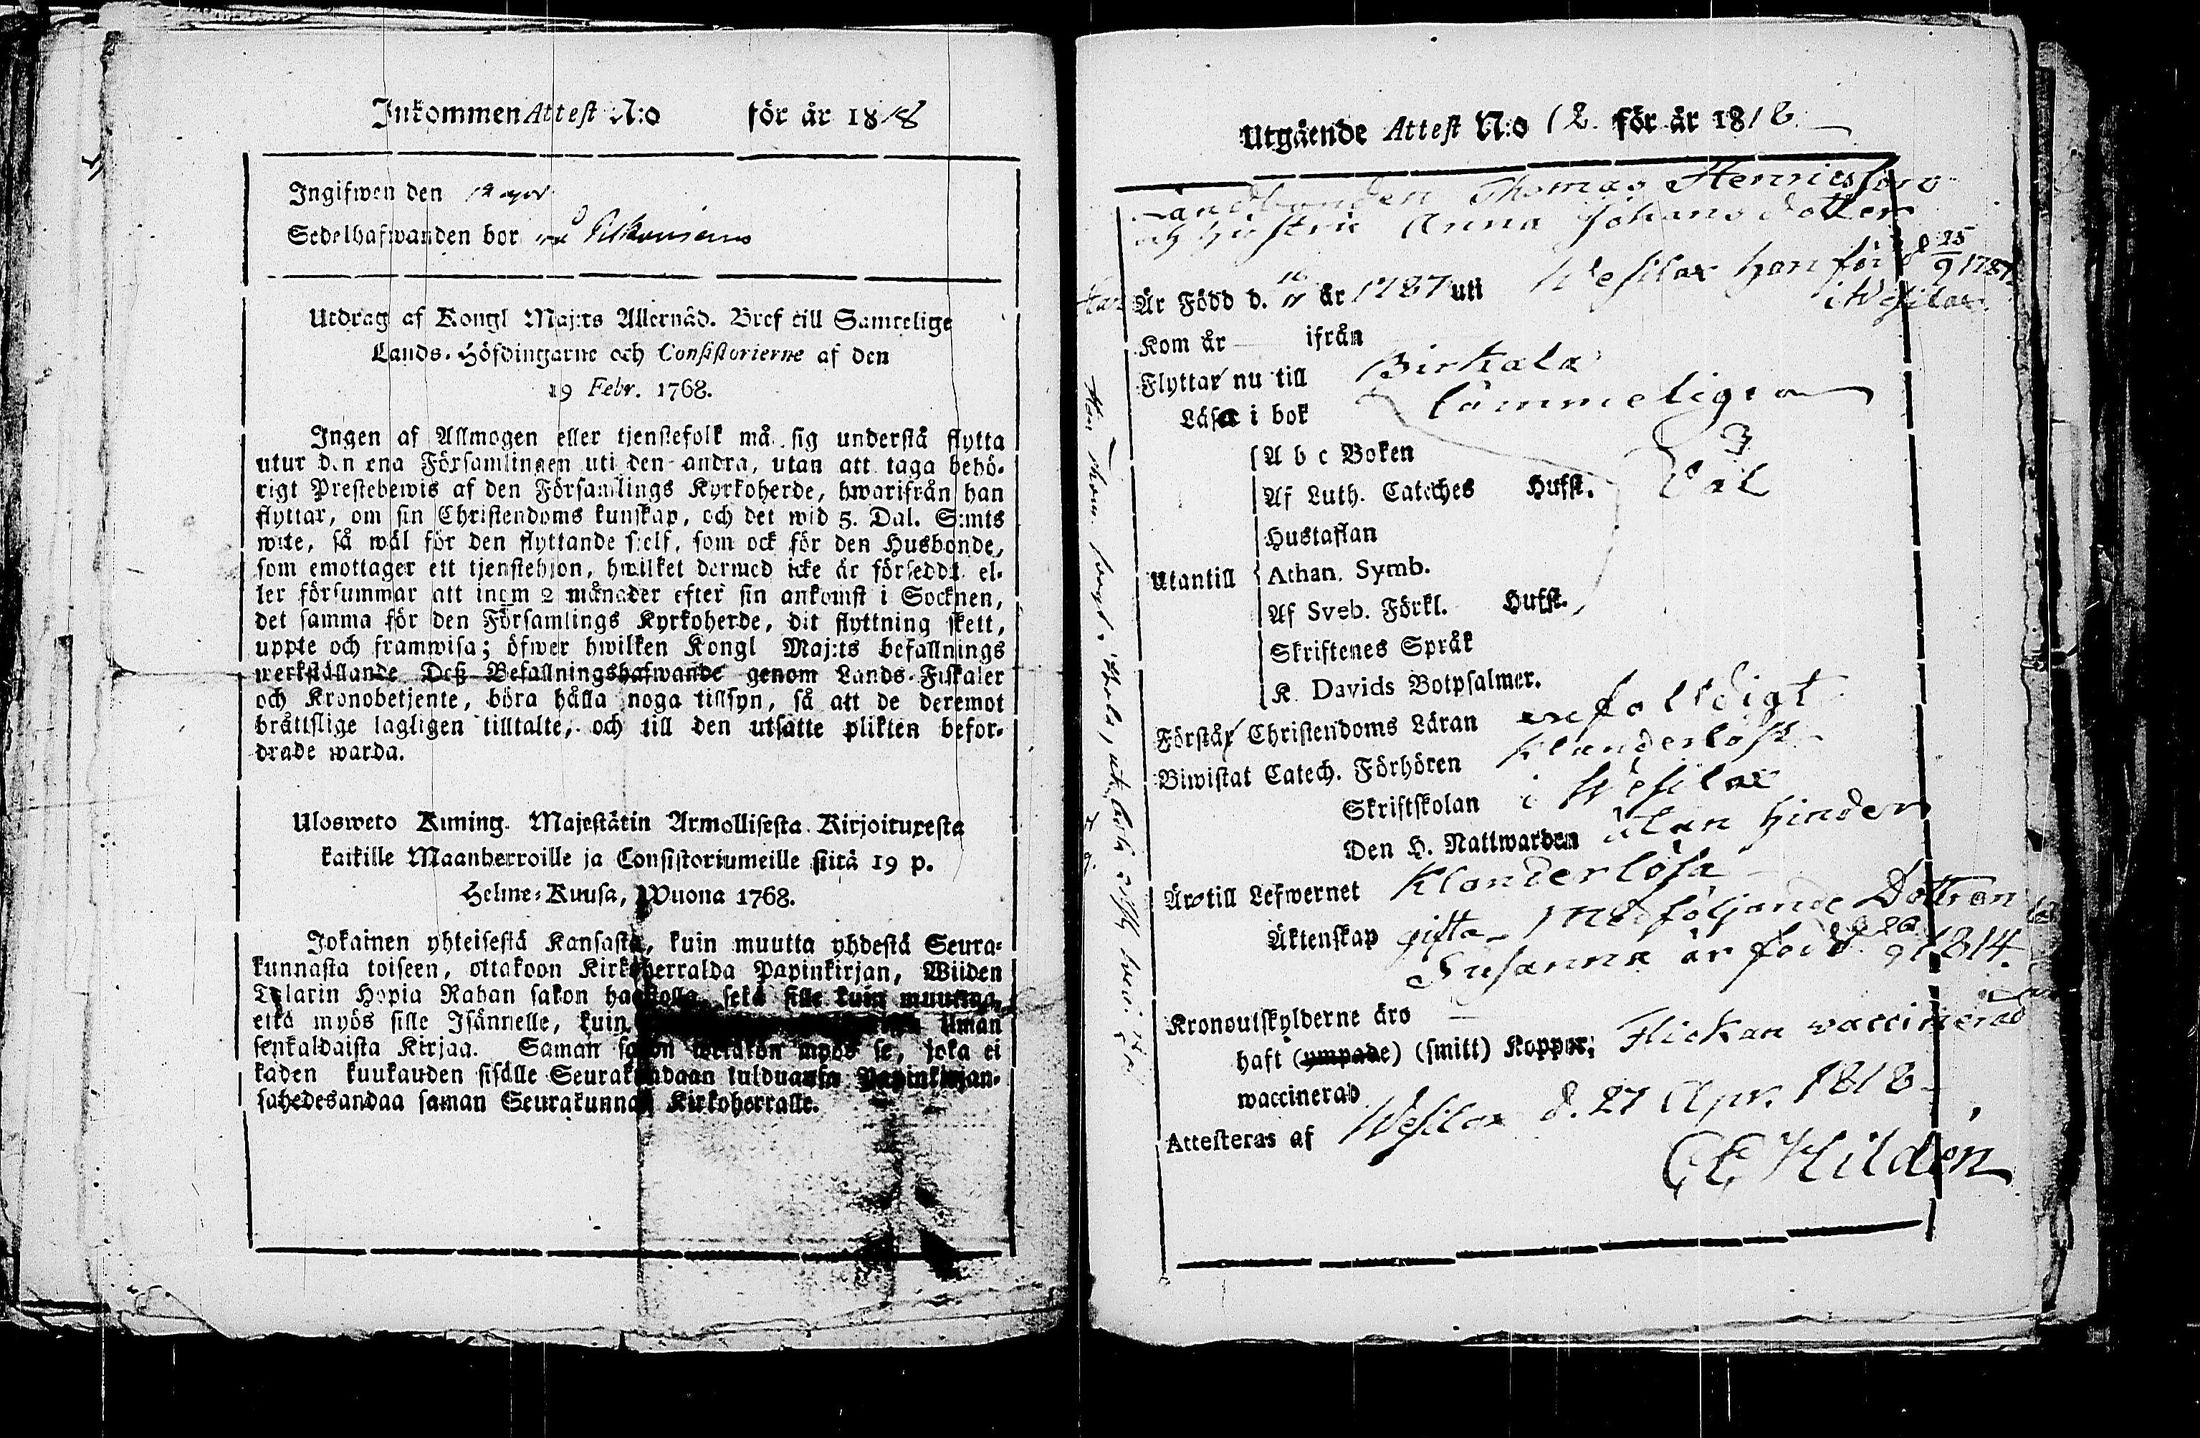 Inkommen Attest N:o för år 1818
Ingifwen den
Sedelhafwanden bor
Utdrag af Kongl Maj:ts Allernåd. Bref till Samtelige
Lands-Höfdingarne och Consistorierne af den
19 Febr. 1768.
Ingen af Allmogen eller tjenstefolk må sig understå flytta
utur den ena Församlingen uti den andra, utan att taga behö-
rigt Prestebewis af den Församlings Kyrkoherde, hwarifrån han
flyttar, om sin Christendoms kunskap, och det wid 5. Dal. S:mts
wite, så wäl för den flyttande sielf, som ock för den Husbonde,
som emottager ett tjenstehjon, hwilket dermed icke är försedd, el-
ler försummar att inom 2 månader efter sin ankomst i Socknen,
det samma för den Församlings Kyrkoherde, dit flyttning skett,
uppte och framwisa; öfwer hwilken Kongl Maj:ts befallnings
werkställande Deß Befallningshafwande genom Lands-Fiskaler
och Kronobetjente, böra hålla noga tillsyn, så att de deremot
bråttslige lagligen tilltalte, och till den utsatte plikten befor-
drade warda.
Ulosweto Kuning. Majestätin Armollisesta Kirjoituxesta
kaikille Maanherroille ja Consistoriumeille siitä 19 p.
Helme-Kuusa, Wuona 1768.
Jokainen yhteisestä Kansasta, kuin muutta yhdestä Seura-
kunnasta toiseen, ottakoon Kirkoherralda Papinkirjan, Wiiden
Talarin Hopia Rahan sakon haastolla, sekä sille kuin muutta,
että myös sille Isännelle, kuin ilman
senkaldaista Kirjaa. Saman sakon wetäkön myös se, joka ei
kaden kuukauden sisälle Seurakundaan tulduansa Papinkirjan-
sahedesandaa saman Seurakunnan Kirkoherralle.
Utgående Attest N:o 12. för år 1818.
Landbonden Thomas Henricsson
och hustru Anna Johans dotter
Är Född d. år 1787 uti Wesilax hon för d 25/9 1787
i Wesilax.
Kom år ifrån
Flyttar nu till Birkala
Läsa i bok lämmeligen
A b c Boken 3
Af Luth. Cateches Hufst. Väl
Hustaflan
Utantill Athan. Symb.
Af Sveb. Förkl. Hufst.
Skriftenes Språk
K. Davids Botpsalmer.
Förstår Christendoms Läran enfalldigt
Biwistat Catech. Förhören klanderlöst
Skriftskolan i Wesilax
Den H. Nattwarden utan hinder
Äro till Lefwernet Klanderlösa
Äktenskap gifta. Medföljande Dottren
Susanna är född 1814.
Kronoutskylderne äro
haft (ympade) (smitt) Koppor; Flickan vaccinerad
waccinerad
Attesteras af Wesilax d. 27 Apr. 1818
C E Hildén